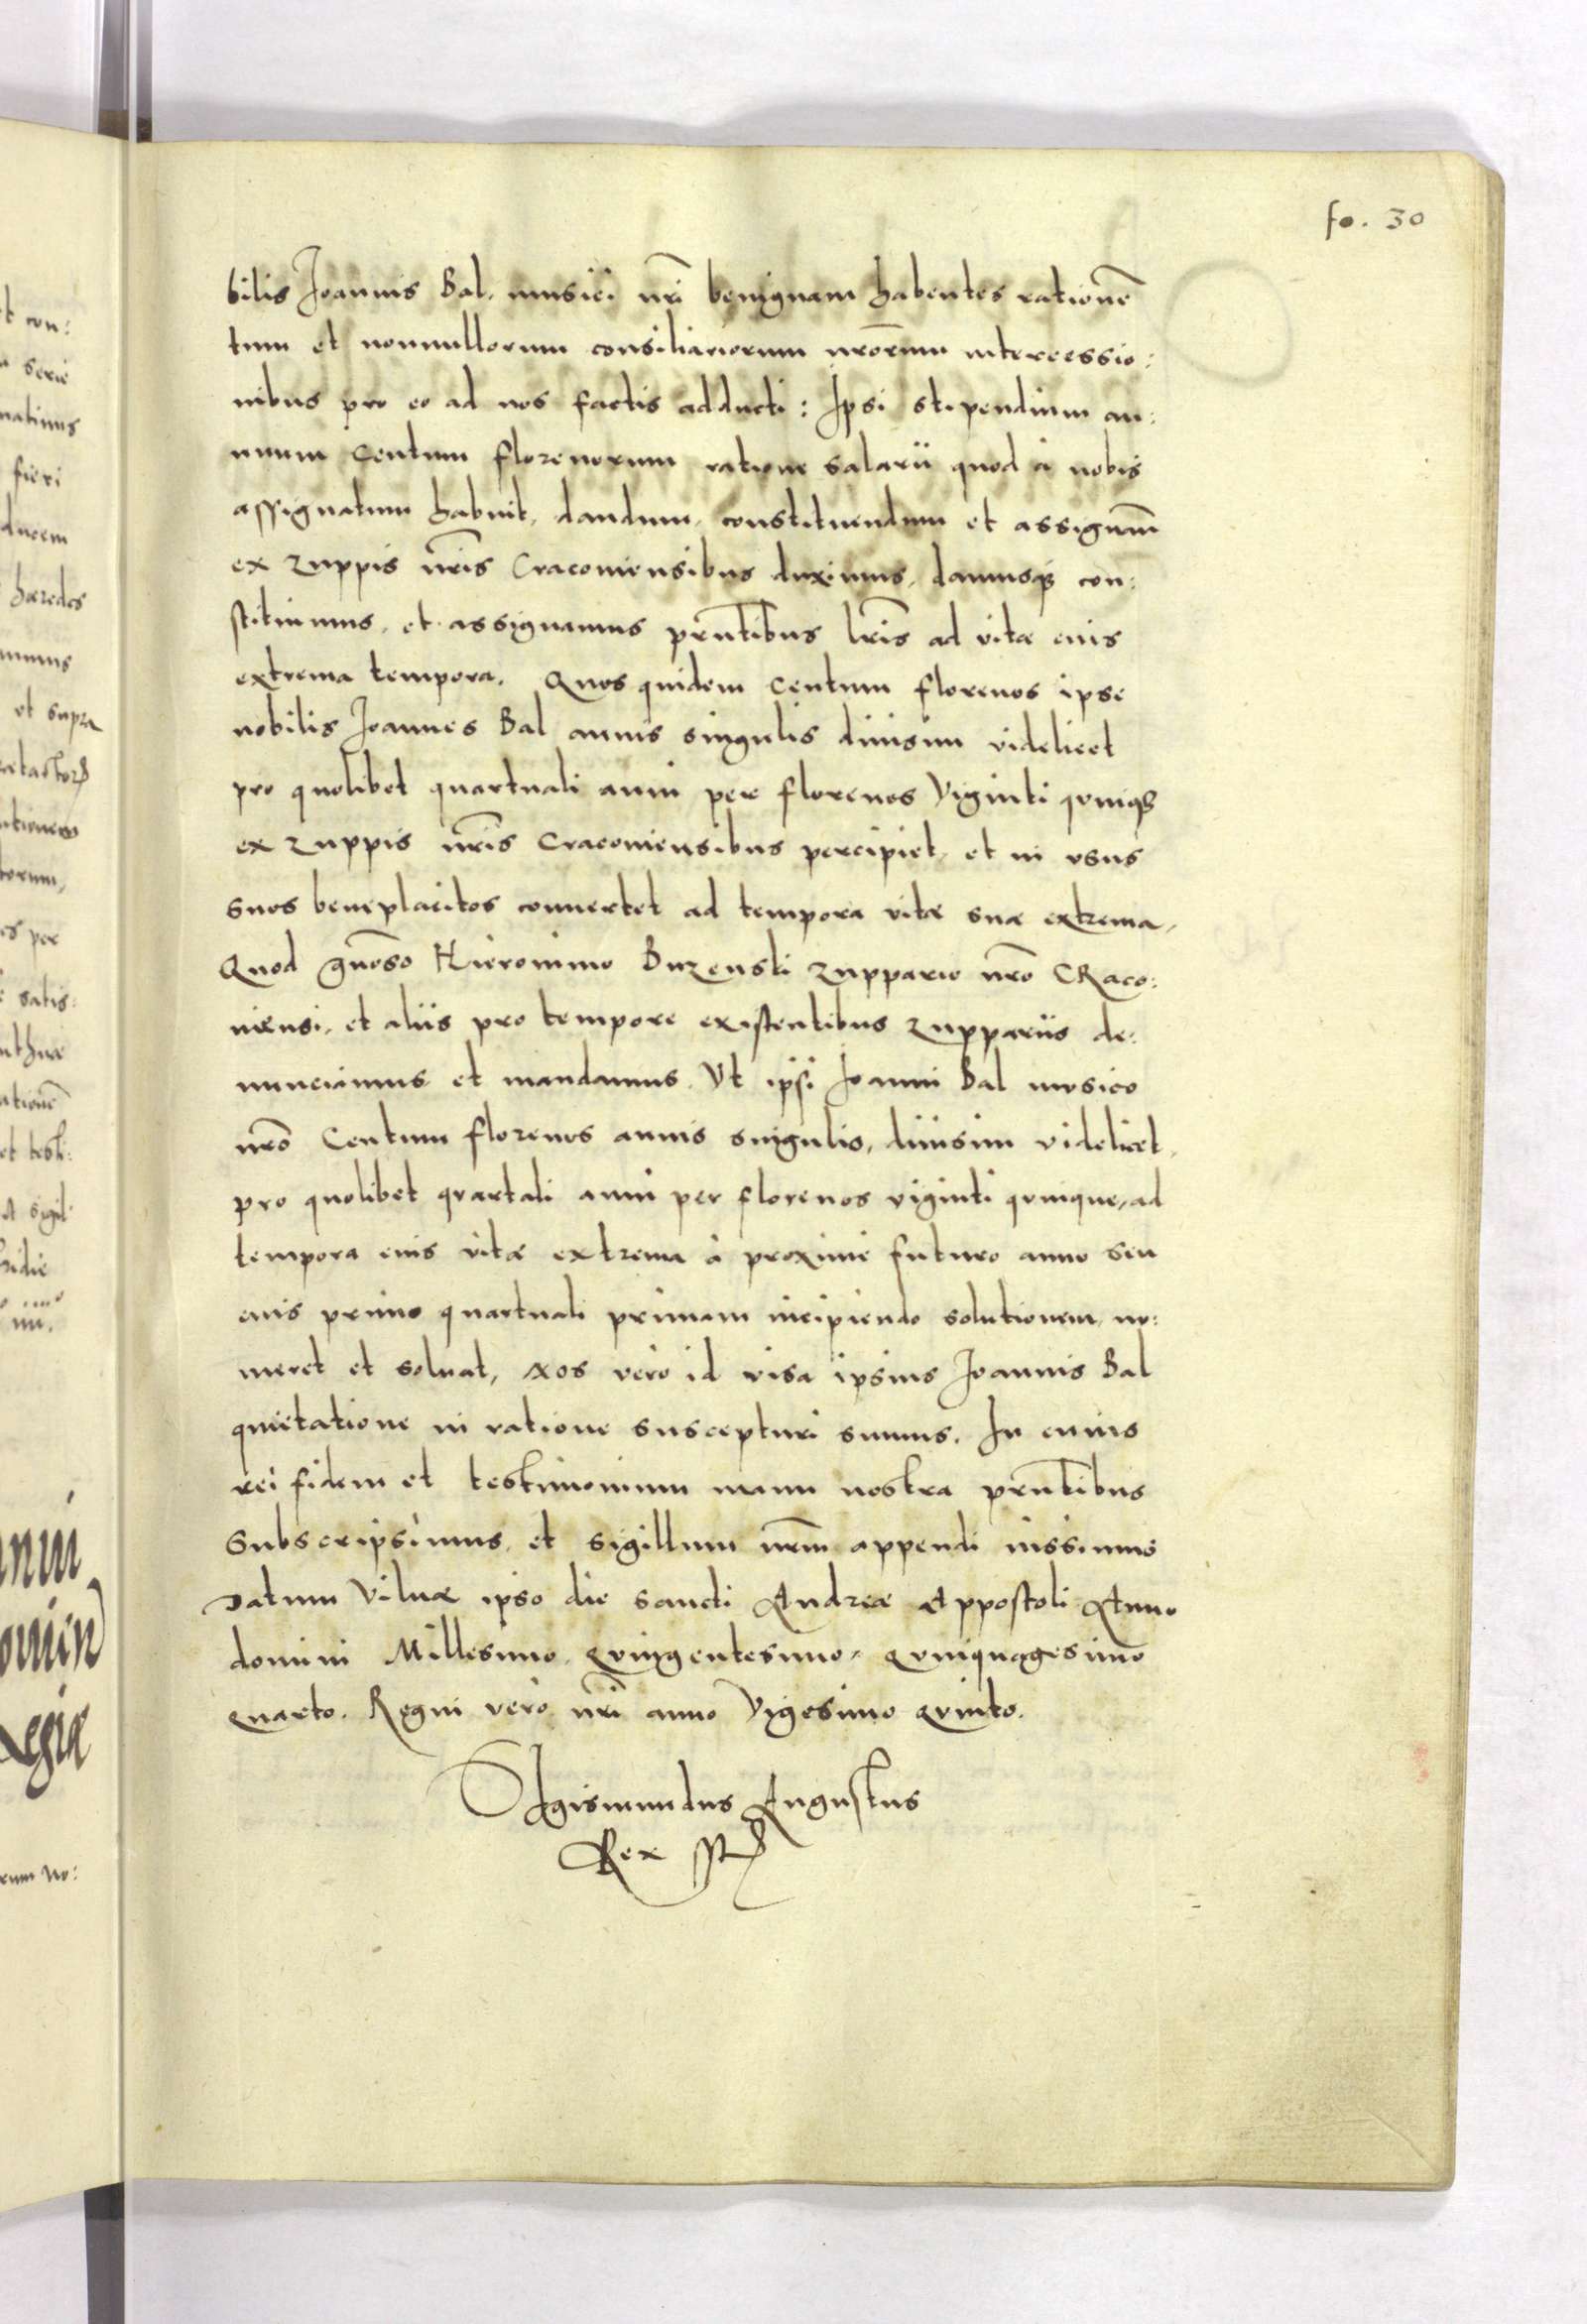 fo. 30
bilis Joannis Bal. musici nrĩ benignam habentes rationẽ
tum et nonnullorum consiliariorum nrõrum intercessio:
nibus pro eo ad nos factis adducti: Ipsi stipendium an:
nuum Centum florenorum ratione salarii quod à nobis
assignatum habuit, dandum, constituendum et assignañ
ex zuppis nrĩs Cracouiensibus duximus, damusqȝ con:
stituimus, et assignamus prñtibus lrĩs ad vitæ eius
extrema tempora. Quos quidem Centum florenos ipse
nobilis Joannes Bal annis singulis diuisim videlicet
pro quolibet quartuali anni per florenos Viginti qvinqȝ
ex zuppis nrĩs Cracouiensibus percipiet, et in vsus
suos beneplacitos conuertet ad tempora vitæ suæ extrema,
Quod gñoso Hieronimo Buzenski zuppario nrõ CRaco:
uiensi, et aliis pro tempore existentibus zuppariis de:
nunciamus et mandamus. Vt ipsi Joanni Bal mvsico
nrõ Centum florenos annis singulis, diuisim videlicet,
pro quolibet qvartali anni per florenos viginti qvinque, ad
tempora eius vitæ extrema à proximè futuro anno seu
eius primo quartuali primam incipiendo solutionem, nu:
meret et soluat, Nos verò id visa ipsius Joannis Bal
quietatione in ratione suscepturi sumus. In cuius
rei fidem et testimonium manu nostra prñtibus
subscripsimus, et sigillum nrm̃ appendi iussimus
Datum Vilnæ ipso die Sancti Andreæ Appostoli Anno
domini Millesimo, Qvingentesimo, Qvinquagesimo
Quarto. Regni verò nrĩ anno Vigesimo Qvinto.
Sigismundus Augustus
Rex sst